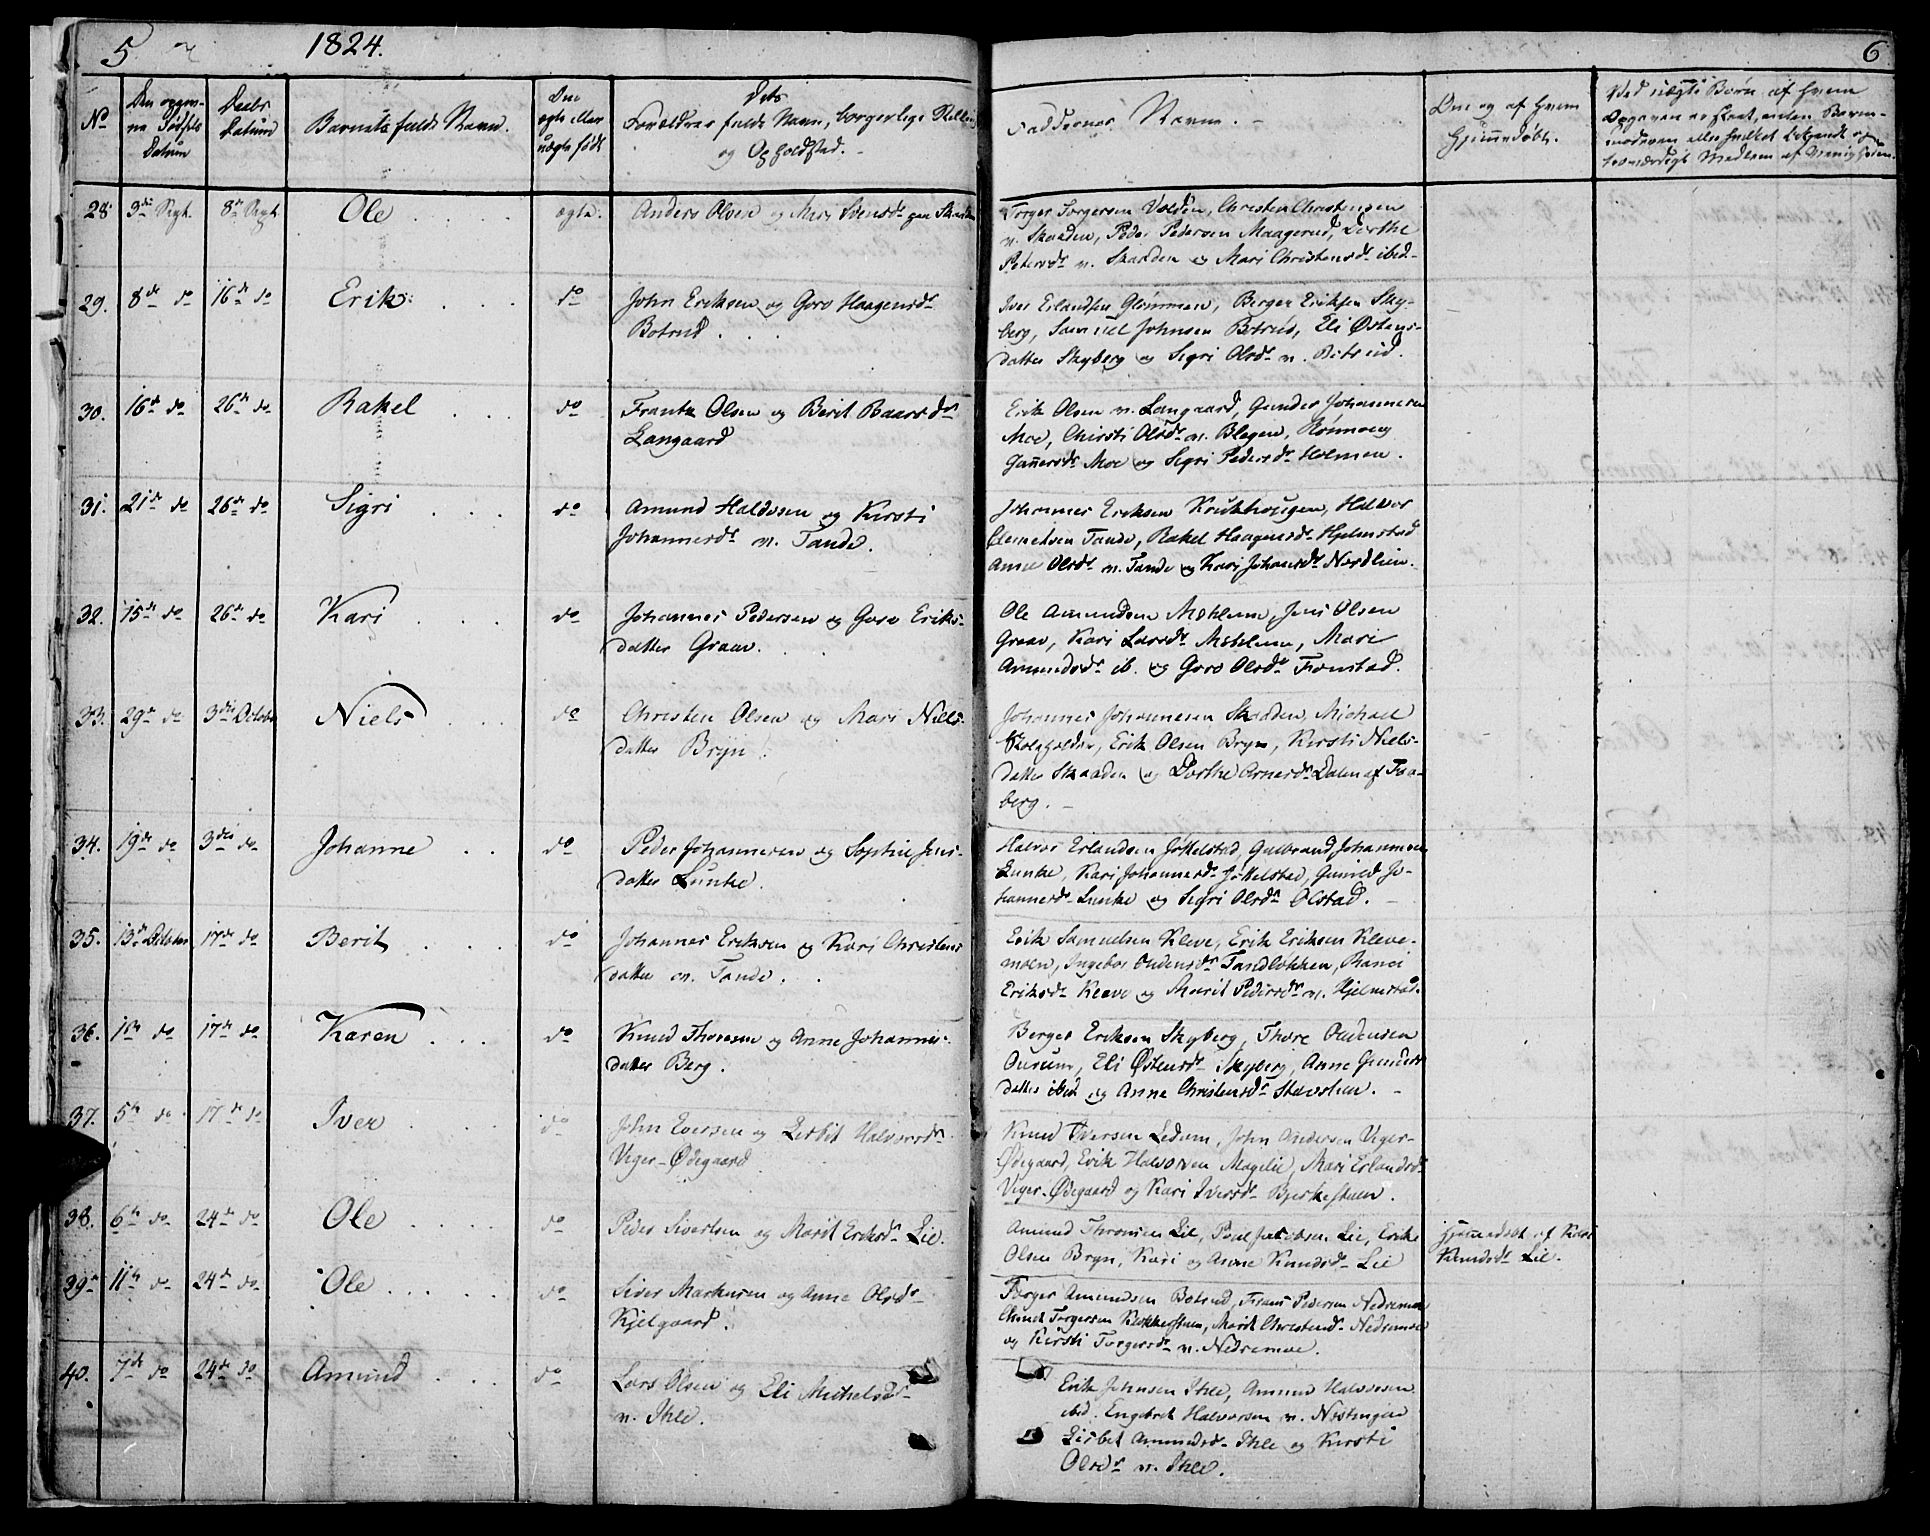 5
1824.
6
No
Barnets fulde Navn.
Dets
Forældres fulde Navn, borgerlige Stilling
og Opholdsted.
Faddernes Navne.
Daabs
Datum
Om og af hvem
Hjemmedøbt.
28 3die Sept. 8de Sept. Ole ægte. Anders Olsen og Mari Svensdr
Torger Torgersen Volden, Christen Christensen
n. Skaaden, Peder Pedersen Maagerud, Dorthe
Petersdr n. Skaaden og Mari Christensdr ibid
29. 8de do 16de do Erik do John Eriksen og Goro Haagensdr
Botrud.
Iver Erlandsen Glømmen, Berger Eriksen Sky-
berg, Samuel Johnsen Botrud, Eli Østens-
datter Skyberg og Segri Olsdr n. Botrud.
30. 16de do 26de do Rakel do Frantz Olsen og Berit Baarsdr
Langaard
Erik Olsen n. Langaard, Gunder Johannesen
Moe, Chirsti Olsdr n. Blegen, Rønnoug
Moe og Segri Pedersdr Holmen.
31. 21de do 26de do Sigri do Amund Haldosen og Kirsti
Johannesdr n. Tande.
Johannes Eriksen Krukhougen, Halvor
Clemetsen Tande, Rakel Haagensdr Hjelmstad
Anne Olsdr n. Tande og Kari Johansdr Nordlien.
32. 15de do 26de do Kari do Johannes Pedersen og Goro Eriks-
datter Graav.
Ole Amundsen Mæhlum, Jens Olsen
Graav, Kari Larsdr Mæhlum, Mari
Amundsdr ib. og Goro Olsdr Fronstad.
33. 29de do 3die October Niels do Christen Olsen og Mari Niels-
datter Bryn.
Johannes Johannesen Skaaden, Michael
Erik Olsen Bryn, Kirsti Niels-
datter Skaaden og Dorthe Arnesdr Dalen af Faa-
berg.
34. 19de do 3die do Johanne do Peder Johannesen og Sophie Jens-
datter Lunke.
Halvor Erlandsen Jøkelstad, Gulbrand Johannesen
Lunke, Kari Johannesdr Jøkelstad, Gunild Jo-
hannesdr Lunke og Sigri Olsdr Olstad.
35. 13de October 17de do Berit do Johannes Eriksen og Kari Christens
datter n. Tande.
Erik Samuelsen Kleve, Erik Eriksen Kleve-
moen, Ingebor Oudensdr Tandløkken, Ranei
Eriksdr Kleve og Marit Pedersdr n. Hjelmstad.
36. 1ste do 17de do Karen do Knud Thoresen og Anne Johannes-
datter Berg.
Berger Eriksen Skyberg, Thore Oudensen
Ourum, Eli Østensdr Skyberg, Anne Gunder
datter ibid og Anne Christensdr Stavslien.
37. 5te do 17de do Iver do John Eversen og Lisbit Halvorsdr
Veger-Ødegaard
Knud Iversen Ledum, John Andersen Veger-
Ødegaard, Erik Halvorsen Magelie, Mari Erlandsdr
Veger-Ødegaard og Kari Iversdr Bjerkestuen.
38. 6te do 24de do Ole do Peder Sivertsen og Marit Eriksdr Lie.
Amund Thronsen Lie, Poul Jacobsen Lie, Erik
Olsen Bryn, Kari og Anne Knudsdr Lie
Hjemmedøbt af Kari
Knudsdr Lie.
39 11te do 24de do Ole do Siver Markusen og Anne Olsdr
Kjelgaard.
Torger Amundsen Botrud, Frans Pedersen Nedremoe
Torgersen Klokkerstuen, Marit Nedremoe
og Kirsti Torgersdr n. Nedremoe.
40. 7de do 24de do Amund do Lars Olsen og Eli Michelsdr
n. Ihle.
Erik Johnsen Ihle, Amund Halvorsen
ibid. Engebret Halvorsen n.
Lisbet Amundsdr Ihle og Kirsti
Olsdr n. Ihle.